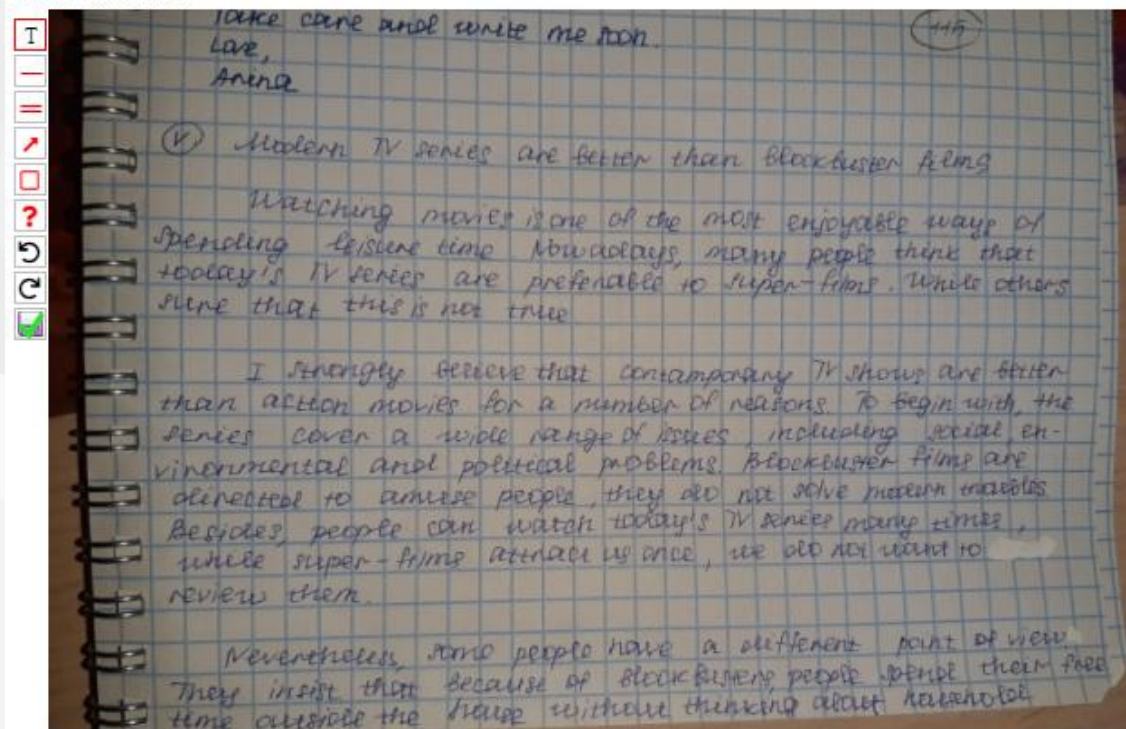 Take care and write me soon.
115
Love,
Anina
V Modern TV series are better than blockbuster films
Watching movies is one of the most enjoyable ways of
spending leisure time Nowadays, many people think that
today's TV series are preferable to super-films. While others
sure that this is not true.
I strongly believe that contamporary TV shows are better
than action movies for a number of reasons. To begin with, the
series cover a wide range of issues including social, en-
vironmental and political problems. Blockbuster films are
directed to amuse people, they do not solve modern troubles
Besides, people can watch today's TV series many times,
while super-films attract us once, we do not want to
review them.
Nevertheless, some people have a different point of view
They insist that because of blockbusters people spend their free
time outside the house without thinking about household